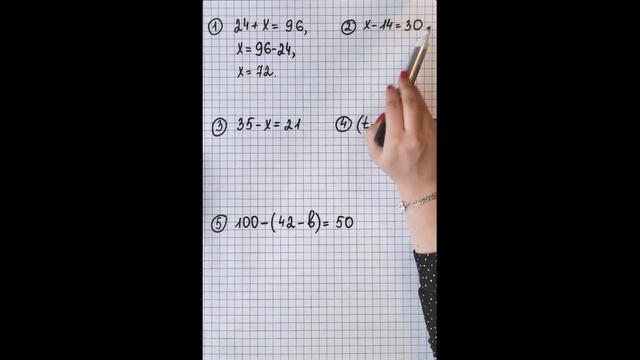 ① 24 + x = 96,
x = 96 - 24,
x = 72.
② x - 14 = 30
③ 35 - x = 21
④ (t -
⑤ 100 - (42 - b) = 50